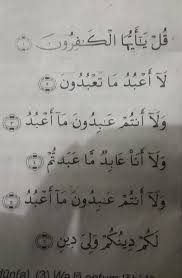 قُلْ يَٰٓأَيُّهَا ٱلْكَٰفِرُونَ ١
لَآ أَعْبُدُ مَا تَعْبُدُونَ ٢
وَلَآ أَنتُمْ عَٰبِدُونَ مَآ أَعْبُدُ ٣
وَلَآ أَنَا۠ عَابِدٌ مَّا عَبَدتُّمْ ٤
وَلَآ أَنتُمْ عَٰبِدُونَ مَآ أَعْبُدُ ٥
لَكُمْ دِينُكُمْ وَلِىَ دِينِ ٦
(3) Wa